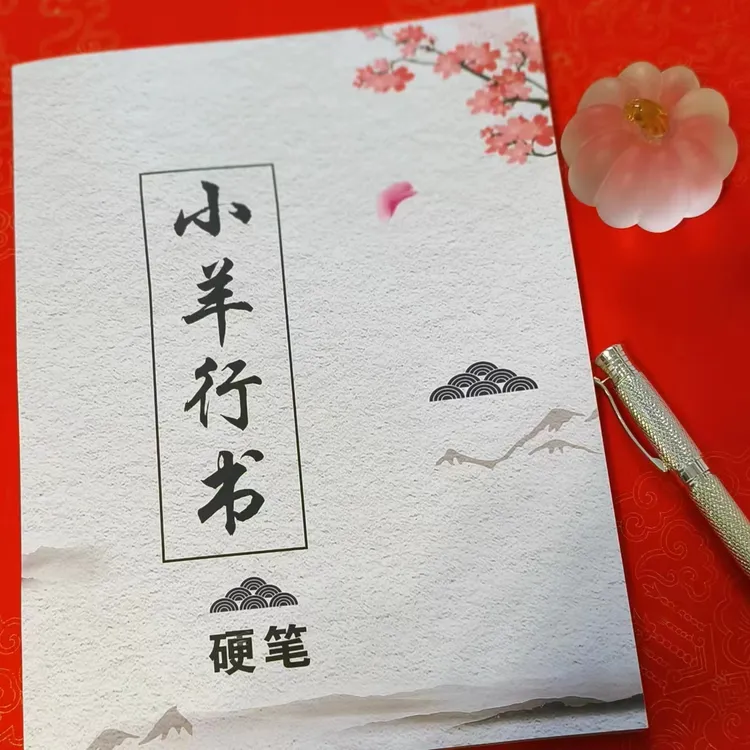 小羊行书
硬笔